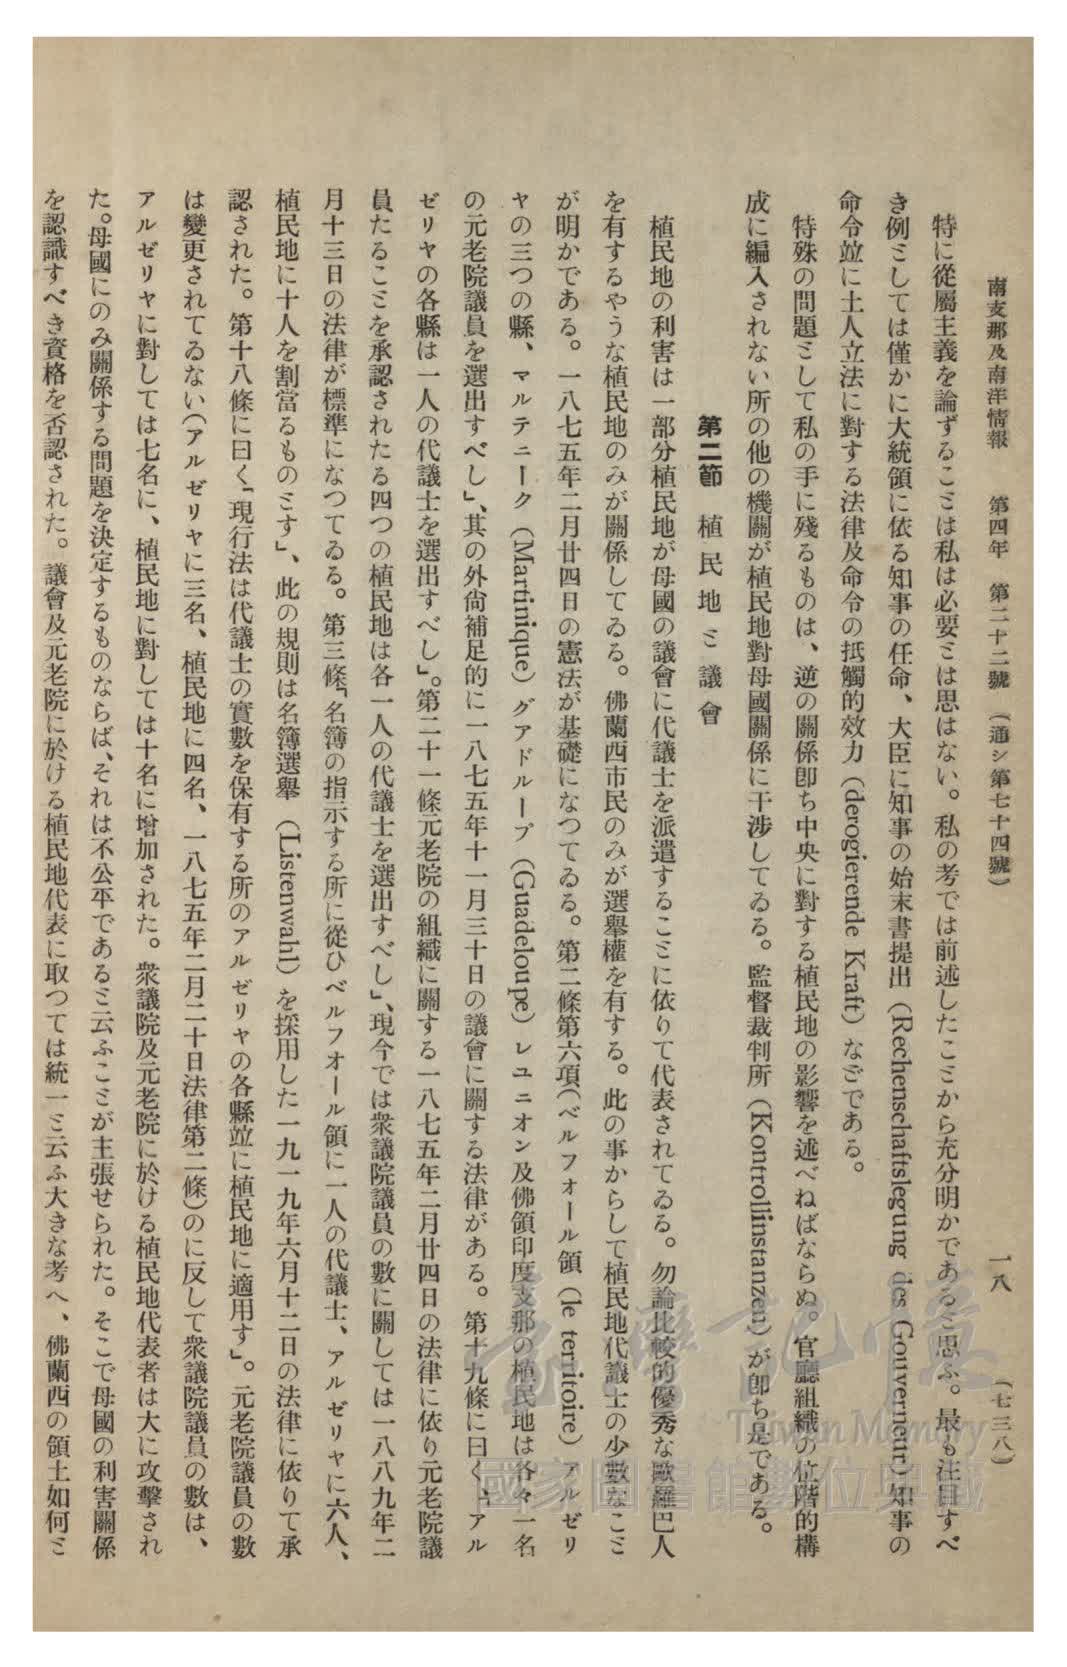 南支那及南洋情報　第四年　第二十二號　（通シ第七十四號）　一八　（七三八）
特に從屬主義を論ずることは私は必要とは思はない。私の考では前述したことから充分明かであると思ふ。最も注目すべ
き例としては僅かに大統領に依る知事の任命、大臣に知事の始末書提出（Rechenschaftslegung des Gouverneur）知事の
命令竝に土人立法に對する法律及命令の抵觸的效力（derogierende Kraft）などである。
特殊の問題として私の手に殘るものは、逆の關係卽ち中央に對する植民地の影響を述べねばならぬ。官廳組織の位階的構
成に編入されない所の他の機關が植民地對母國關係に干渉してゐる。監督裁判所（Kontrollinstanzen）が卽ち是である。
第二節　植民地と議會
植民地の利害は一部分植民地が母國の議會に代議士を派遣することに依りて代表されてゐる。勿論比較的優秀な歐羅巴人
を有するやうな植民地のみが關係してゐる。佛蘭西市民のみが選擧權を有する。此の事からして植民地代議士の少數なこと
が明かである。一八七五年二月廿四日の憲法が基礎になつてゐる。第二條第六項（ベルフォール領（le territoire）アルゼリ
ヤの三つの縣、マルテニーク（Martinique）グアドループ（Guadeloupe）レユニオン及佛領印度支那の植民地は各々一名
の元老院議員を選出すべし」、其の外尙補足的に一八七五年十一月三十日の議會に關する法律がある。第十九條に曰く「アル
ゼリヤの各縣は一人の代議士を選出すべし」。第二十一條元老院の組織に關する一八七五年二月廿四日の法律に依り元老院議
員たることを承認されたる四つの植民地は各一人の代議士を選出すべし」、現今では衆議院議員の數に關しては一八八九年二
月十三日の法律が標準になつてゐる。第三條「名簿の指示する所に從ひベルフオール領に一人の代議士、アルゼリヤに六人、
植民地に十人を割當るものとす」、此の規則は名簿選擧（Listenwahl）を採用した一九一九年六月十二日の法律に依りて承
認された。第十八條に曰く「現行法は代議士の實數を保有する所のアルゼリヤの各縣竝に植民地に適用す」。元老院議員の數
は變更されてゐない（アルゼリヤに三名、植民地に四名、一八七五年二月二十日法律第二條）のに反して衆議院議員の數は、
アルゼリヤに對しては七名に、植民地に對しては十名に增加された。衆議院及元老院に於ける植民地代表者は大に攻擊され
た。母國にのみ關係する問題を決定するものならば、それは不公平であると云ふことが主張せられた。そこで母國の利害關係
を認識すべき資格を否認された。議會及元老院に於ける植民地代表に取つては統一と云ふ大きな考へ、佛蘭西の領土如何と
臺灣記憶
Taiwan Memory
國家圖書館數位典藏